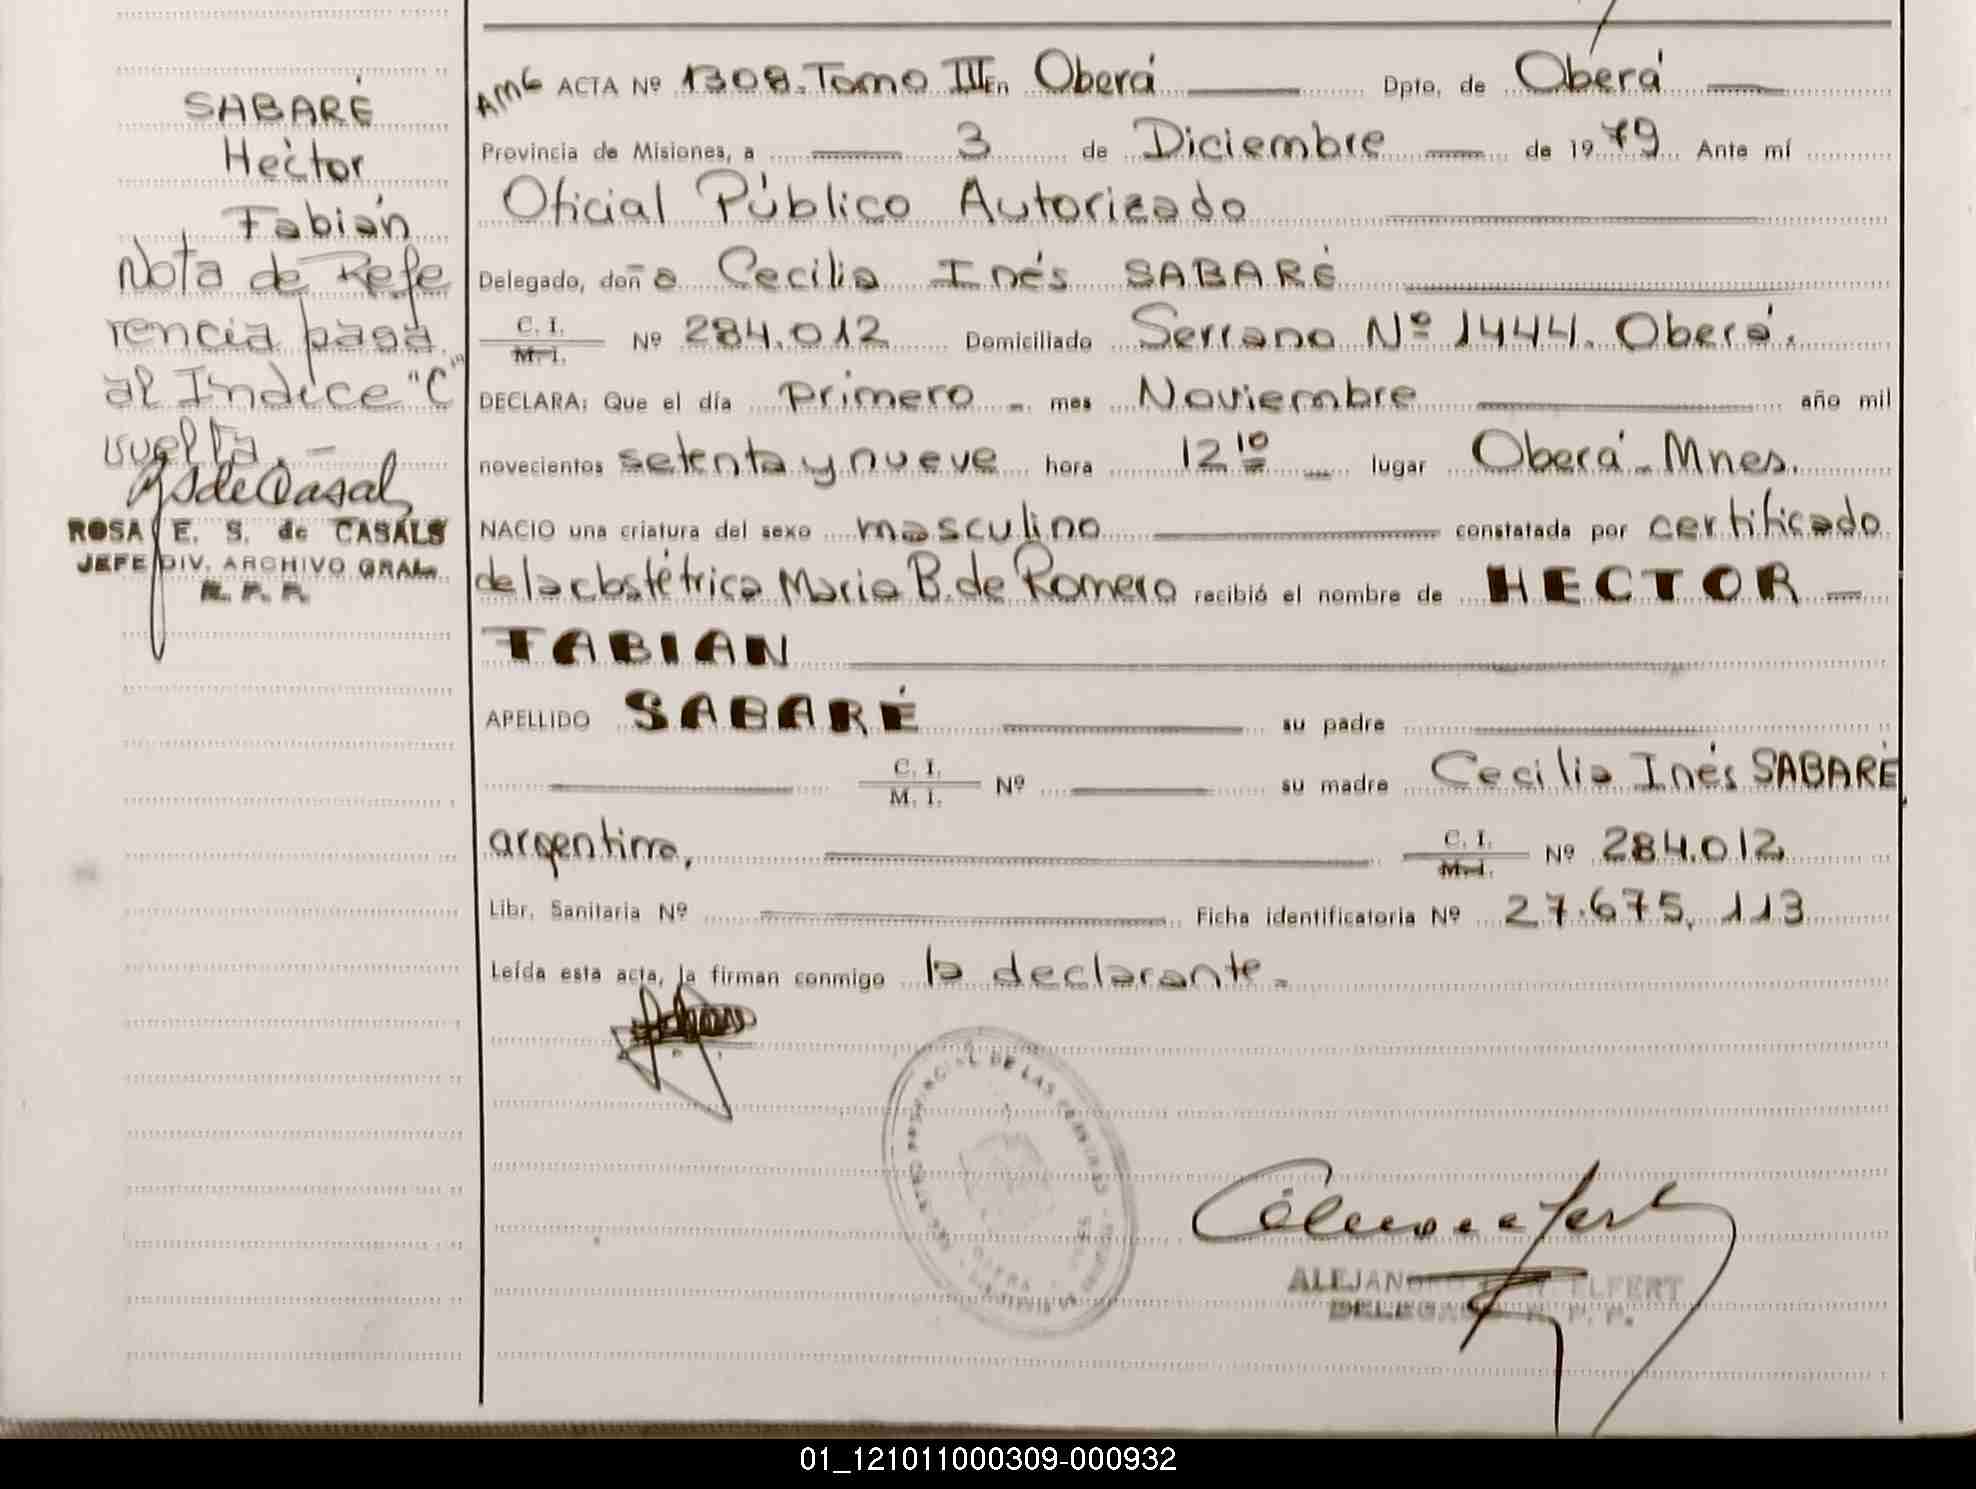 SABARÉ
Hector
Fabián
Nota de Refe
rencia pasa
al Indice "C"
vuelta.-
ROSA E. S. de CASALS
JEFE DIV. ARCHIVO GRAL.
R. P. P.
AMG ACTA Nº 1308. Tomo III En Oberá Dpto. de Oberá
Provincia de Misiones, a 3 de Diciembre de 1979 Ante mí
Oficial Público Autorizado
Delegado, doña Cecilia Inés SABARÉ
C. I. M. I. Nº 284.012 Domiciliado Serrano Nº 1444. Oberá.
DECLARA: Que el día primero - mes Noviembre año mil
novecientos setenta y nueve hora 12 10 lugar Oberá - Mnes.
NACIO una criatura del sexo masculino constatada por certificado
de la obstétrica Maria B. de Romero recibió el nombre de HECTOR
FABIAN
APELLIDO SABARÉ su padre
C. I. M. I. Nº su madre Cecilia Inés SABARÉ,
argentina, C. I. M. I. Nº 284.012,
Libr. Sanitaria Nº Ficha identificatoria Nº 27.675.113
Leída esta acta, la firman conmigo la declarante.-
PROVINCIAL DE LAS PERSONAS
OBERA
ALEJANDRO ELFERT
DELEGADO R. P. P.
01_121011000309-000932